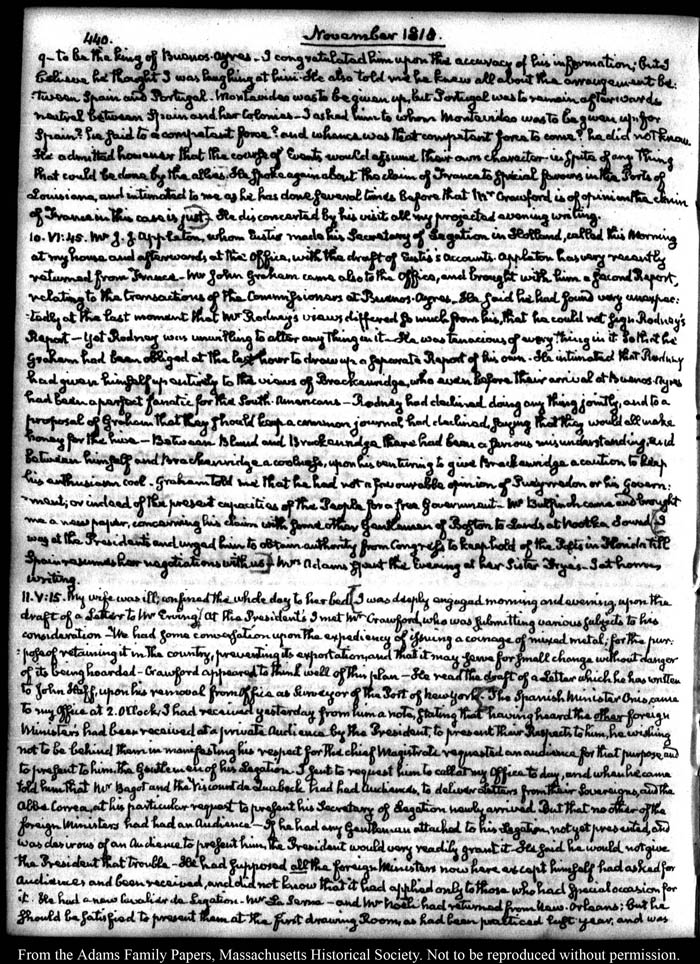 440.
November 1818.
g- to be the King of Buenos-Ayres. I congratulated him upon the accuracy of his information; but I
believe he thought I was laughing at him. He also told me he knew all about the arrangement be-
tween Spain and Portugal. Montevideo was to be given up, but Portugal was to remain afterwards
neutral between Spain and her Colonies. I asked him to whom Montevideo was to be given up for
Spain? he said to a competent force? and whence was that competent force to come? he did not know.
He admitted however that the course of Events would assume their own character in spite of any thing
that could be done by the allies. He spoke again about the claim of France to special favours in the Ports of
Louisiana, and intimated to me as he has done several times before that Mr Crawford is of opinion the claim
of France in this case is just. He disconcerted by his visit all my projected evening writing.
10. VI:45. Mr J. J. Appleton, whom Eustis made his Secretary of Legation in Holland, called this Morning
at my house and afterwards at the Office, with the draft of Eustis's accounts. Appleton has very recently
returned from France. Mr John Graham came also to the Office, and brought with him a second Report,
relating to the transactions of the Commissioners at Buenos-Ayres. He said he had found very unexpec-
tedly at the last moment that Mr Rodney's views differed so much from his, that he could not sign Rodney's
Report — Yet Rodney was unwilling to alter any thing in it — He was tenacious of every thing in it so that he
Graham had been obliged at the last hour to draw up a separate Report of his own. He intimated that Rodney
had given himself up entirely to the views of Brackenridge, who even before their arrival at Buenos-Ayres
had been a perfect fanatic for the South-Americans — Rodney had declined doing any thing jointly, and to a
proposal of Graham that they should keep a common journal had declined, saying that they would all make
honey for the hive — Between Bland and Brackenridge there had been a serious misunderstanding, and
between himself and Brackenridge a coolness, upon his venturing to give Brackenridge a caution to keep
his enthusiasm cool. Graham told me that he had not a favourable opinion of Pueyrredon or his Govern-
ment; or indeed of the present capacities of the People for a free Government. Mr Bulfinch came and brought
me a newspaper, concerning his claim with some other Gentlemen of Boston to Lands at Nootka Sound. I
was at the President's and urged him to obtain authority from Congress to keep hold of the Posts in Florida till
Spain resumes her negotiations with us. Mrs Adams spent the Evening at her Sister Frye's. I at home
writing.
11. V:15. My wife was ill; confined the whole day to her bed. I was deeply engaged morning and evening, upon the
draft of a Letter to Mr Erving. At the President's I met Mr Crawford, who was submitting various subjects to his
consideration — We had some conversation upon the expediency of issuing a coinage of mixed metal, for the pur-
pose of retaining it in the country, preventing its exportation, and that it may serve for small change without danger
of its being hoarded — Crawford appeared to think well of this plan — He read the draft of a Letter which he has written
to John Haff, upon his removal from Office as Surveyor of the Port of New York. The Spanish Minister Onis, came
to my Office at 2. O'Clock, I had received yesterday from him a note, stating that having heard the other foreign
Ministers had been received at a private Audience by the President, to present their Respects to him, he wishing
not to be behind them in manifesting his respect for the chief Magistrate requested an audience for that purpose, and
to present to him the Gentlemen of his Legation. I sent to request him to call at my Office to day, and when he came
told him that Mr Bagot and the Viscount de Quabeck had had Audiences, to deliver Letters from their Sovereigns, and the
Abbé Correa, at his particular request to present his Secretary of Legation newly arrived. But that no other of the
foreign Ministers had had an Audience — If he had any Gentleman attached to his Legation, not yet presented, and
was desirous of an Audience to present him, the President would very readily grant it. He said he would not give
the President that trouble — He had supposed all the foreign Ministers now here except himself had asked for
Audiences and been received, and did not know that it had applied only to those who had special occasion for
it. He had a new Cavalier de Legation. Mr La Serna — and Mr Noeli had returned from New Orleans; but he
should be satisfied to present them at the first drawing Room, as had been practiced last year, and was
From the Adams Family Papers, Massachusetts Historical Society. Not to be reproduced without permission.